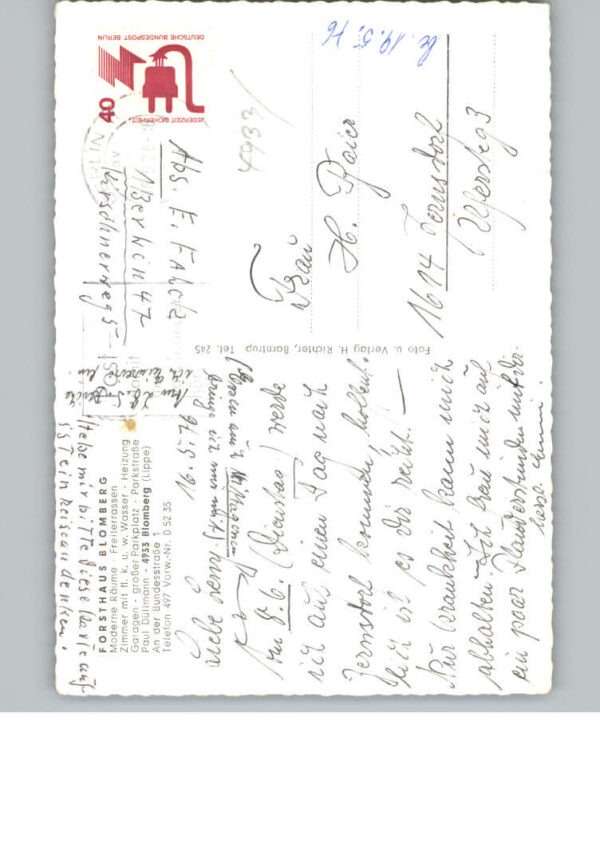 Hebe mir bitte diese Karte auf
ist ein Reiseandenken!
FORSTHAUS BLOMBERG
Moderne Räume · Freiterrassen
Zimmer mit fl. k. u. w. Wasser · Heizung
Garagen · großer Parkplatz · Parkstraße
Paul Düllmann - 4933 Blomberg (Lippe)
An der Bundesstraße 1
Telefon 497 Vorw.-Nr. 0 52 35
16.5.76
Liebe
bringe dir was mit
Am 8.6. (Dienstag) werde
ich auf einen Tag nach
Fernsdorf kommen, hoffentl.
ist es Dir recht! —
Nur Krankheit kann mich
abhalten. Ich freu mich auf
ein paar Plauderstunden mit Dir.
Foto u. Verlag H. Richter, Barntrup Tel. 245
DEUTSCHE BUNDESPOST BERLIN
JEDERZEIT SICHERHEIT
40
Abs. E. Falck
1 Berlin 47
Kirschnerweg 5
4933
19.5.76
Frau
H. Baier
1614
Ufersteg 3